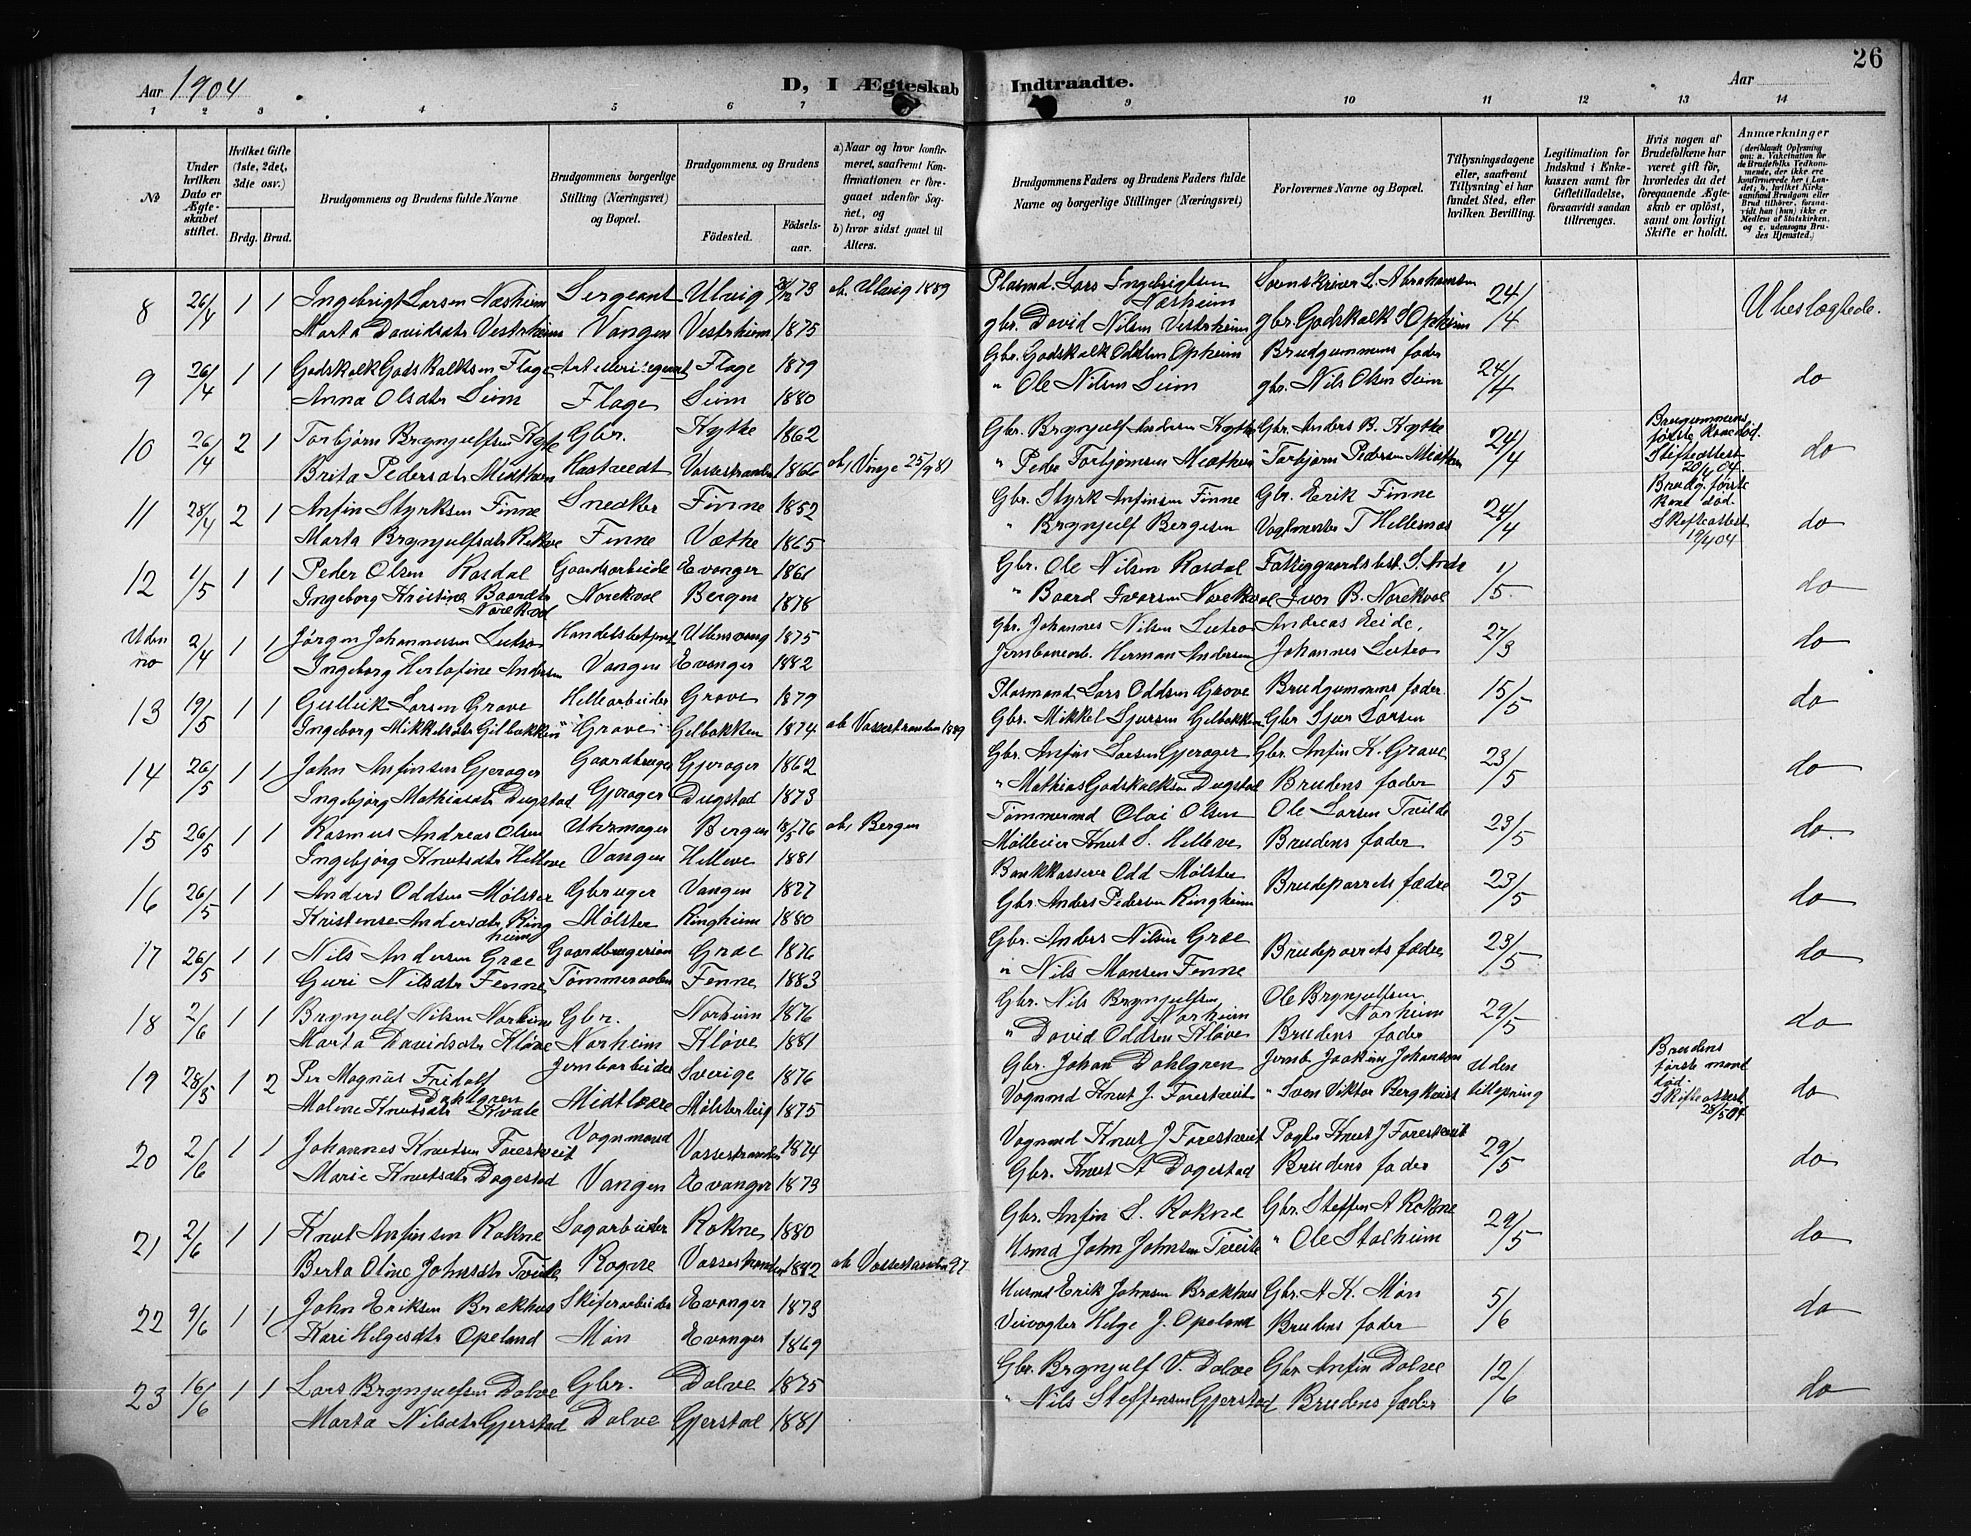 26
Aar 1904
D, I Ægteskab Indtraadte.
Aar
1 2 3 4 5 6 7 9 10 11 12 13 14
No
Under hvilken Dato er Ægteskabet stiftet.
Hvilket Gifte (1ste, 2det, 3die osv.)
Brdg. Brud.
Brudgommens og Brudens fulde Navne
Brudgommens borgerlige Stilling (Næringsvei) og Bopæl.
Brudgommens og Brudens
Fødested.
Fødselsaar.
a) Naar og hvor konfirmeret, saafremt Konfirmationen er foregaaet udenfor Sognet, og
b) hvor sidst gaaet til Alters.
Brudgommens Faders og Brudens Faders fulde Navne og borgerlige Stillinger (Næringsvei)
Forlovernes Navne og Bopæl.
Tillysningsdagene eller, saafremt Tillysning ei har fundet Sted, efter hvilken Bevilling.
Legitimation for Indskud i Enkekassen samt for Giftetilladelse, forsaavidt saadan tiltrænges.
Hvis nogen af Brudefolkene har været gift før, hvorledes da det foregaaende Ægteskab er opløst, samt om lovligt Skifte er holdt.
Anmærkninger (deriblandt Oplysning om: a. Vakcination for de Brudefolks Vedkommende, der ikke ere konfirmerede her i Landet; b. hvilket Kirkesamfund Brudgom eller Brud tilhører, forsaavidt han (hun) ikke er Medlem af Statskirken, og c. udensogns Brudes Hjemsted.)
8 26/4 1 1 Ingebrigt Larsen Næsheim Sergeant Ulvig 73 a. Ulvig 1889 Plasmd. Lars Ingebrigtsen Næsheim L. Abrahamsen 24/4 Ubeslægtede.
Marta Davidsdtr Vestrheim Vangen Vestrheim 1875 gbr. David Nilsen Vestrheim gbr. Godskalk S Opheim
9 26/4 1 1 Godskalk Godskalksen Flage Flage 1879 Gbr. Godskalk Oddsen Opheim Brudgummens fader 24/4 do
Anna Olsdtr Seim Flage Seim 1880 " Ole Nilsen Seim gbr. Nils Olsen Seim
10 26/4 2 1 Torbjørn Brynjulfsen Kyte Gbr. Kythe 1862 Gbr. Brynjulf Andersen Kythe Gbr. Anders B. Kythe 24/4 Brudgummens første Kone død. Skifteattest 20/4 04. do
Brita Pedersdtr Midthun Haatvedt Vossestranden 1866 a, Vinje 25/9 81 " Peder Torbjørnsen Midthun " Torbjørn Pedersen Midthun
11 28/4 2 1 Anfin Styrksen Finne Snedker Finne 1852 Gbr. Styrk Anfinsen Finne Gbr. Erik Finne 24/4 Brudg. første Kone død. Skifteattest 19/4 04 do
Marta Brynjulfsdtr Rekve Finne Væthe 1865 " Brynjulf Bergesen T Hellesnæs
12 1/5 1 1 Peder Olsen Rasdal Gaardsarbeider Evanger 1861 Gbr. Ole Nilsen Rasdal Fattiggaardsbest. S. 1/5 do
Ingeborg Kristine Baardsdtr Norekval Norekval Bergen 1878 " Baard Ivarsen Norekval Ivar B. Norekval
Uden no 2/4 1 1 Jørgen Johannessen Lutro Handelsbetjent Ullensvang 1875 Gbr. Johannes Nilsen Lutro Andreas Eide. 27/3 do
Ingeborg Andersen Vangen Evanger 1882 Jernbanearb. Herman Andersen Johannes Lutro
13 19/5 1 1 Gulleik Larsen Grove Hellearbeider Grove 1879 Plasmand Lars Oddsen Grove Brudgummens fader 15/5 do
Ingeborg Mikkelsdtr Gilbakken Grove Gilbakken 1874 a. Vossestranden 1889 Gbr. Mikkel Sjursen Gilbakken Gbr Sjur Larsen
14 26/5 1 1 John Anfinsen Gjerager Gaardbruger Gjerager 1862 Gbr. Anfin Larsen Gjerager Gbr. Anfin K. Grove 23/5 do
Ingebjørg Mathiasdtr Dugstad Gjerager Dugstad 1873 " Mathias Godskalksen Dugstad Brudens fader
15 26/5 1 1 Rasmus Andreas Olsen Uhrmager Bergen 18/5 76 a, Bergen Tømmermd Olai Olsen Ole Larsen Tvilde 23/5 do.
Ingebjørg Knutsdtr Helleve Vangen Helleve 1881 Knut S. Helleve Brudens fader
16 26/5 1 1 Anders Oddsen Mølster Gbruger Vangen 1877 Bankkasserer Odd Mølster Brudeparrets fædre 23/5 do
Kristense Andersdtr Ringheim Mølster Ringheim 1880 Gbr. Anders Pedersen Ringheim
17 26/5 1 1 Nils Andersen Græe Gaardbrugersøn Græe 1876 Gbr. Anders Nilsen Græe Brudeparrets fædre 23/5 do
Guri Nilsdtr Fenne Fenne 1883 " Nils Monsen Fenne
18 2/6 1 1 Brynjulf Nilsen Norheim Gbr. Norheim 1876 Gbr. Nils Brynjulfsen Norheim Ole Brynjulfsen Norheim 29/5 do
Marta Davidsdtr Kløve Norheim Kløve 1881 " David Oddsen Kløve Brudens fader
19 28/5 1 2 Per Magnus Fridolf Dahlgren Jernbarbeider Sverige 1876 Gbr. Johan Dahlgren Jernb. Joakim Johanson Uden tillysning Brudens første mand død. Skifteattest 28/5 04 do
Malene Knutsdtr Kvale Midtløere Mølsterteig 1875 Vognmd Knut J. Forestveit " Sven Viktor Bergkvist
20 2/6 1 1 Johannes Knutsen Forestveit Vognmand Vossestranden 1874 Vognmd Knut J Forestveit Knut J Forestveit 29/5 do
Marie Knutsdtr Dagestad Vangen Evanger 1873 Gbr. Knut A Dagestad Brudens fader
21 2/6 1 1 Knut Anfinsen Rokne Sagarbeider Rokne 1880 Gbr. Anfin S. Rokne Gbr. Steffen A Rokne 29/5 do
Berta Oline Johnsdtr Tveite Rogne Vossestranden 1882 a. Vossestranden 97 Husmd John Johnsen Tveite " Ole Stalheim
22 9/6 1 1 John Eriksen Brækhus Skiferarbeider Evanger 1873 Husmd Erik Johnsen Brækhus Gbr. A K. Møn 5/6 do
Kari Helgesdtr Opeland Møn Evanger 1869 Veivogter Helge J. Opeland Brudens fader
23 16/6 1 1 Lars Brynjulfsen Dolve Gbr. Dolve 1875 Gbr. Brynjulf V. Dolve Gbr Anfin Dolve 12/6 do
Marta Nilsdtr Gjerstad Dolve Gjerstad 1881 " Nils Steffensen Gjerstad Brudens fader